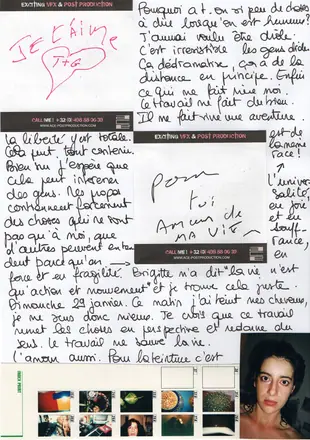 EXCITING VFX & POST PRODUCTION
JE T'AIME
T+G
CALL ME! + 32 (0) 498 88 06 38
WWW.ACE-POSTPRODUCTION.COM
Pourquoi a t-on si peu de choses
à dire lorsqu'on est heureux?
J'aimais vouloir être drôle.
C'est irrésistible les gens drôles.
Ça dédramatise, ça a de la
distance en principe. Enfin
ce qui me fait rire moi.
Ce travail me fait du bien.
Il me fait vivre une aventure.
La liberté y est totale.
Cela peut tout contenir.
Bien sûr j'espère que
cela peut intéresser
des gens. Mes propos
contiennent forcément
des choses qui ne sont
pas qu'à moi, que
d'autres peuvent entendre
dent parce qu'on →
EXCITING VFX & POST PRODUCTION
Pour
toi
Amour de
MA VIE
CALL ME! + 32 (0) 498 88 06 38
WWW.ACE-POSTPRODUCTION.COM
est de
la même
race!
↑
L'univer
salité
en joie
et en
souff
rance,
en
force et en fragilité. Brigitte m'a dit "la vie n'est
qu'action et mouvement" et je trouve cela juste.
Dimanche 29 janvier. Ce matin j'ai teint mes cheveux,
je me sens donc mieux. Je crois que ce travail
remet les choses en perspective et redonne du
sens. Le travail me sauve la vie.
L'amour aussi. Pour la teinture c'est
INDEX PRINT